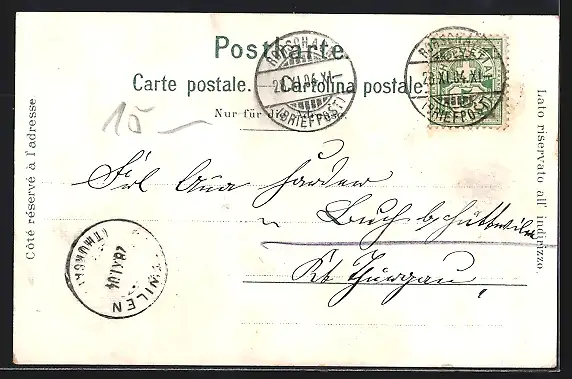 Postkarte.
Carte postale. Cartolina postale.
Nur für die Adresse.
Côté réservé à l'adresse
Lato riservato all' indirizzo.
RORSCHACH
28.XI.04.XI
(BRIEFPOST)
RORSCHACH
28.XI.04.XI
(BRIEFPOST)
15
Frl Anna Harder
Buch b/ Hüttwilen
Kt Thurgau
WILEN
28.XI.04
(THURGAU)